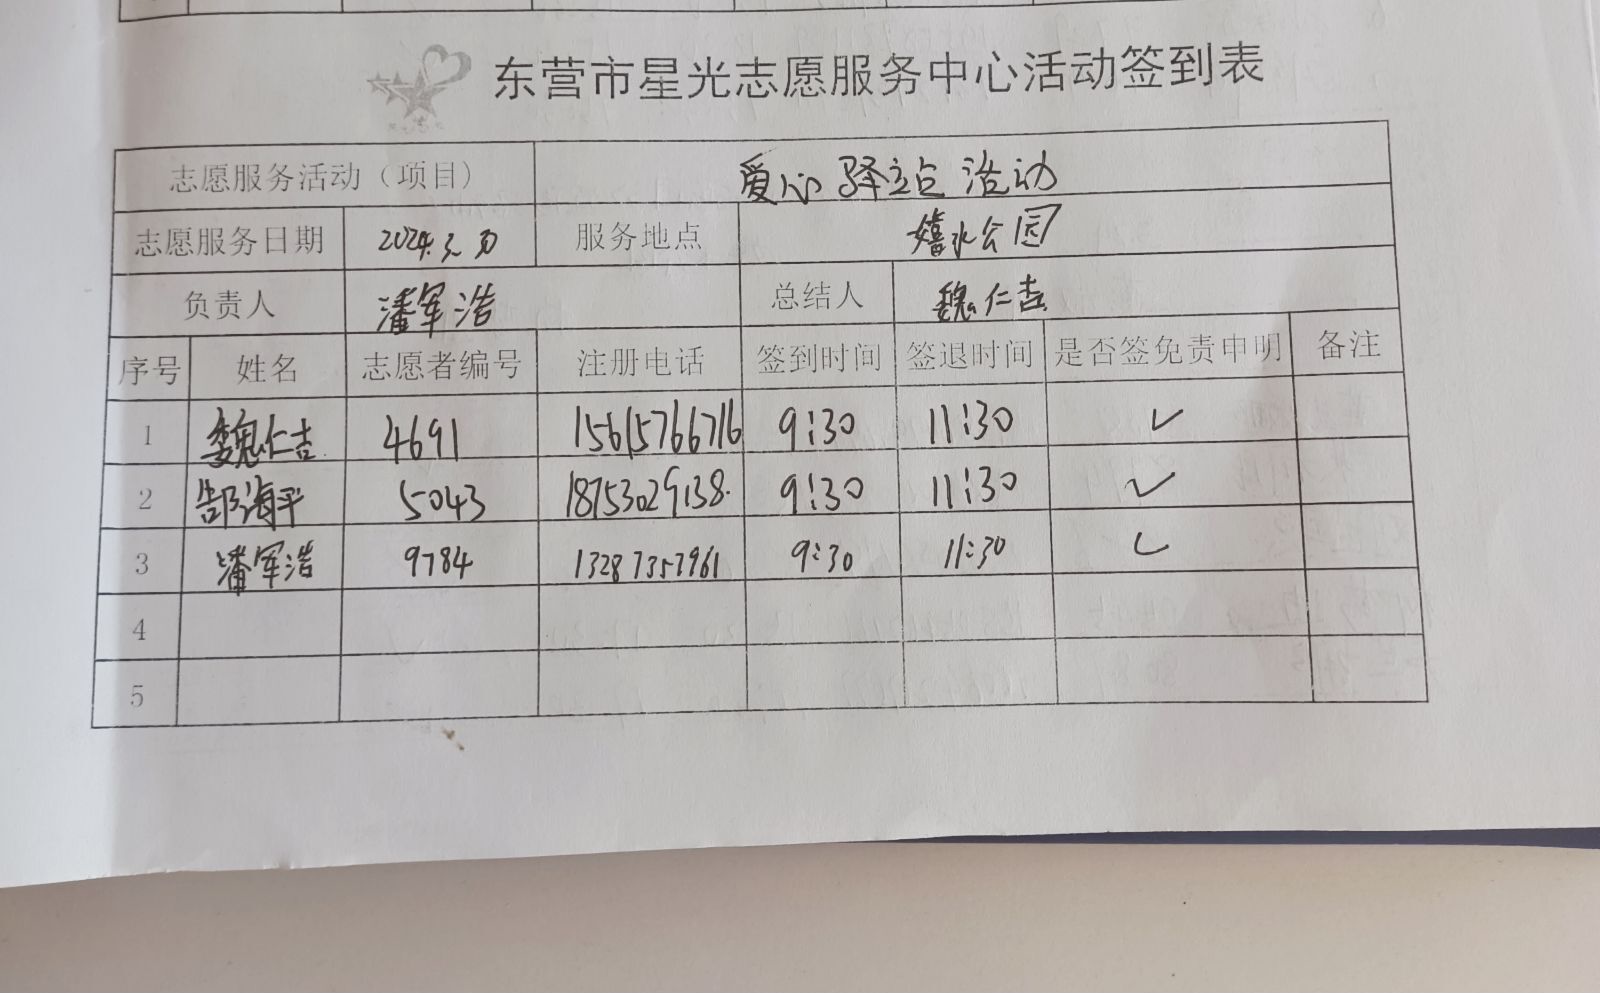 东营市星光志愿服务中心活动签到表
志愿服务活动（项目） 爱心驿站活动
志愿服务日期 2024.3. 服务地点 嬉水公园
负责人 潘军浩 总结人 魏仁吉
序号 姓名 志愿者编号 注册电话 签到时间 签退时间 是否签免责申明 备注
1 魏仁吉 4691 15615766716 9:30 11:30 ✓
2 郜海平 5043 18753029138. 9:30 11:30 ✓
3 潘军浩 9784 13287357961 9:30 11:30 ✓
4
5